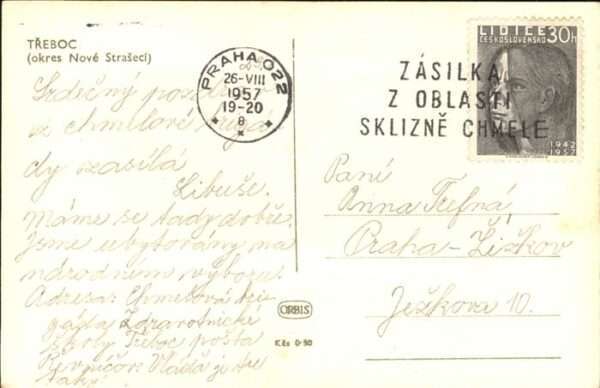 TŘEBOC
(okres Nové Strašecí)
Srdečný pozdrav
z chmelové brigá
dy zasílá
Libuše.
Máme se tady dobře.
Jsme ubytovány na
národním výboru.
Adresa: Chmelová bri
gáda Zdravotnické
školy Třeboc pošta
Řevničov. Vláďa je tře
také.
PRAHA 022
26-VIII
1957
19-20
8
ZÁSILKA
Z OBLASTI
SKLIZNĚ CHMELE
LIDICE
ČESKOSLOVENSKO 30h
1942
1957
Paní
Anna Trefná
Praha-Žižkov
Ježkova 10.
ORBIS
Kčs 0·90